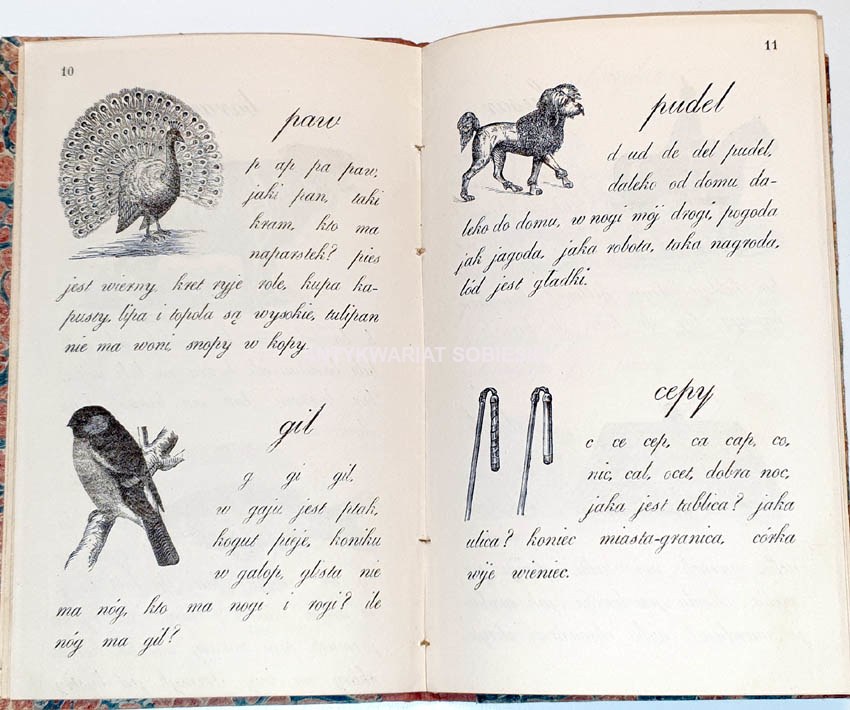 10
paw
p ap pa paw,
jaki pan, taki
kram, kto ma
naparstek? pies
jest wierny, kret ryje role, kupa ka-
pusty, lipa i topola są wysokie, tulipan
nie ma woni, snopy w kopy.
gil
g gi gil,
w gaju jest ptak,
kogut pieje, koniku
w galop, glista nie
ma nóg, kto ma nogi i rogi? ile
nóg ma gil?
11
pudel
d ud de del pudel,
daleko od domu da-
leko do domu, w nogi mój drogi, pogoda
jak jagoda, jaka robota, taka nagroda,
lód jest gładki.
cepy
c ce cep, ca cap, co,
nic, cal, ocet, dobra noc,
jaka jest tablica? jaka
ulica? koniec miasta-granica, córka
wije wieniec.
ANTYKWARIAT SOBIESKI